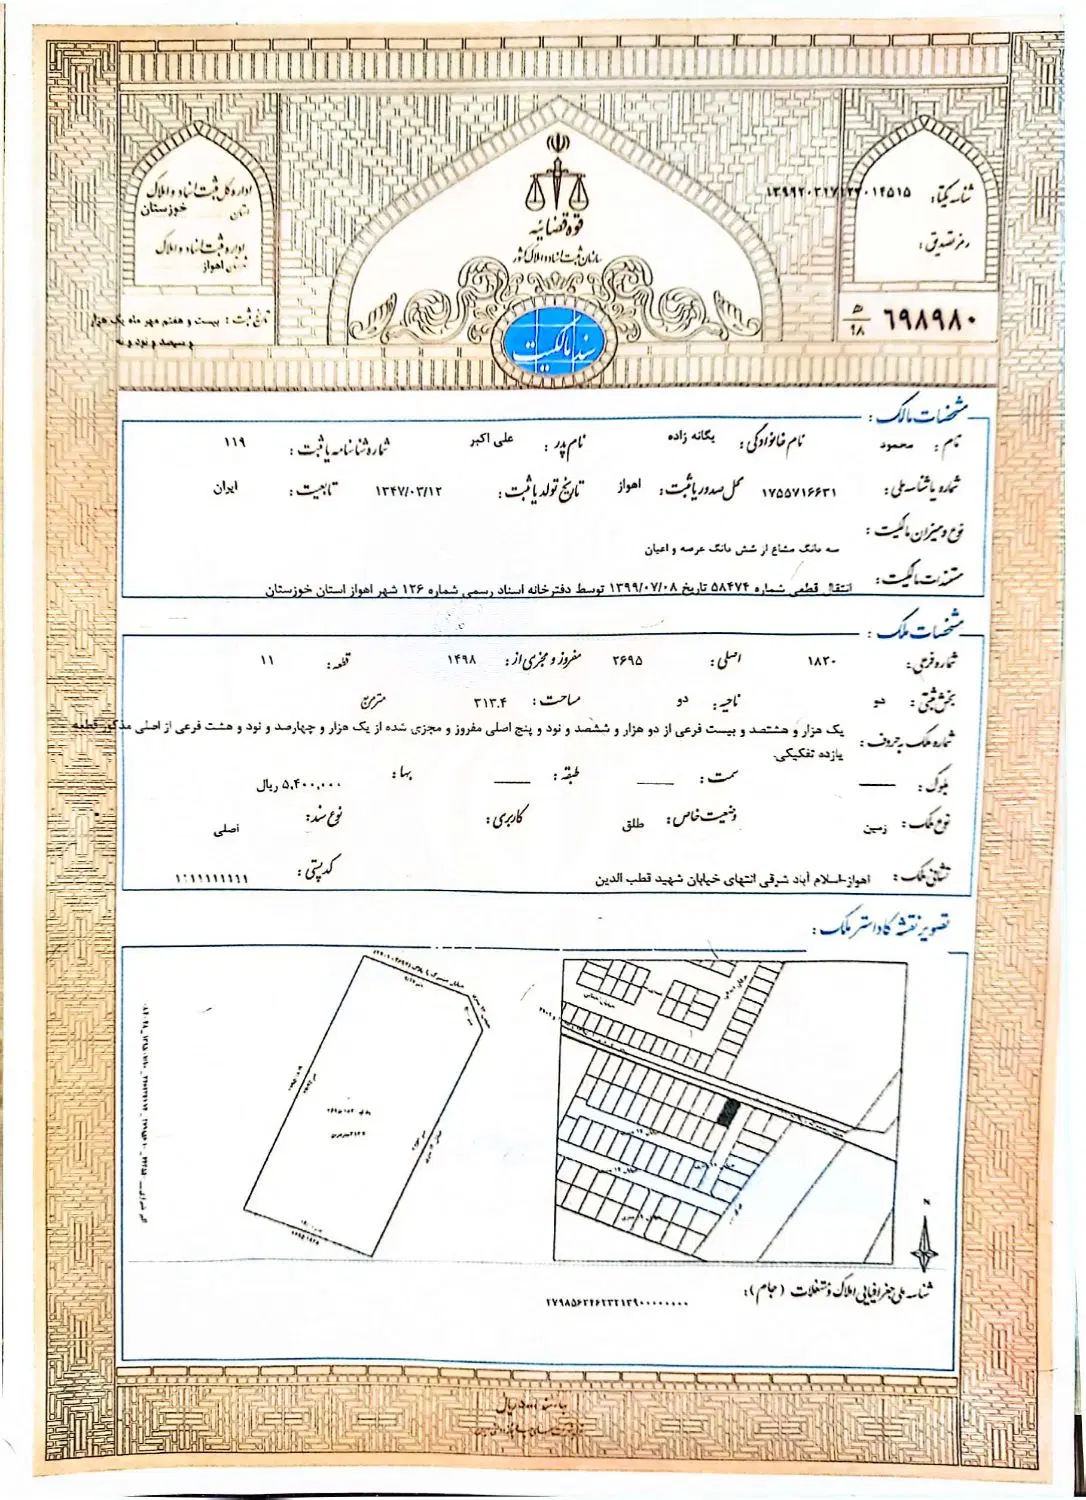 قوه قضائیه
سازمان ثبت اسناد و املاک کشور
سند مالکیت
اداره کل ثبت اسناد و املاک
استان خوزستان
اداره ثبت اسناد و املاک
اهواز
تاریخ ثبت : بیست و هفتم مهر ماه یک هزار
و سیصد و نود و نه
شناسه یکتا :
رمز تصدیق :
۶۹۸۹۸۰ ۵/۹۸
مشخصات مالک :
نام : محمود نام خانوادگی : یگانه زاده نام پدر : علی اکبر شماره شناسنامه یا ثبت : ۱۱۹
شماره یا شناسه ملی : ۱۷۵۵۷۱۶۶۳۱ محل صدور یا ثبت : اهواز تاریخ تولد یا ثبت : ۱۳۴۷/۰۳/۱۲ تابعیت : ایران
نوع و میزان مالکیت :
سه دانگ مشاع از شش دانگ عرصه و اعیان
مستندات مالکیت : انتقال قطعی شماره ۵۸۴۷۴ تاریخ ۱۳۹۹/۰۷/۰۸ توسط دفترخانه اسناد رسمی شماره ۱۲۶ شهر اهواز استان خوزستان
مشخصات ملک :
شماره فرعی : ۱۸۲۰ اصلی : ۲۶۹۵ مفروز و مجزی از : ۱۴۹۸ قطعه : ۱۱
بخش ثبتی : دو ناحیه : دو مساحت : ۳۱۳.۴ مترمربع
شماره ملک به حروف : یک هزار و هشتصد و بیست فرعی از دو هزار و ششصد و نود و پنج اصلی مفروز و مجزی شده از یک هزار و چهارصد و نود و هشت فرعی از اصلی مذکور قطعه
یازده تفکیکی.
بلوک : سمت : طبقه : بها : ۵,۴۰۰,۰۰۰ ریال
نوع ملک : زمین وضعیت خاص : طلق کاربری : نوع سند : اصلی
نشانی ملک : اهواز-اسلام آباد شرقی انتهای خیابان شهید قطب الدین کد پستی : ۱۱۱۱۱۱۱۱۱۱
تصویر نقشه کاداستر ملک :
N
شناسه ملی جغرافیایی املاک و مستغلات (جام) :